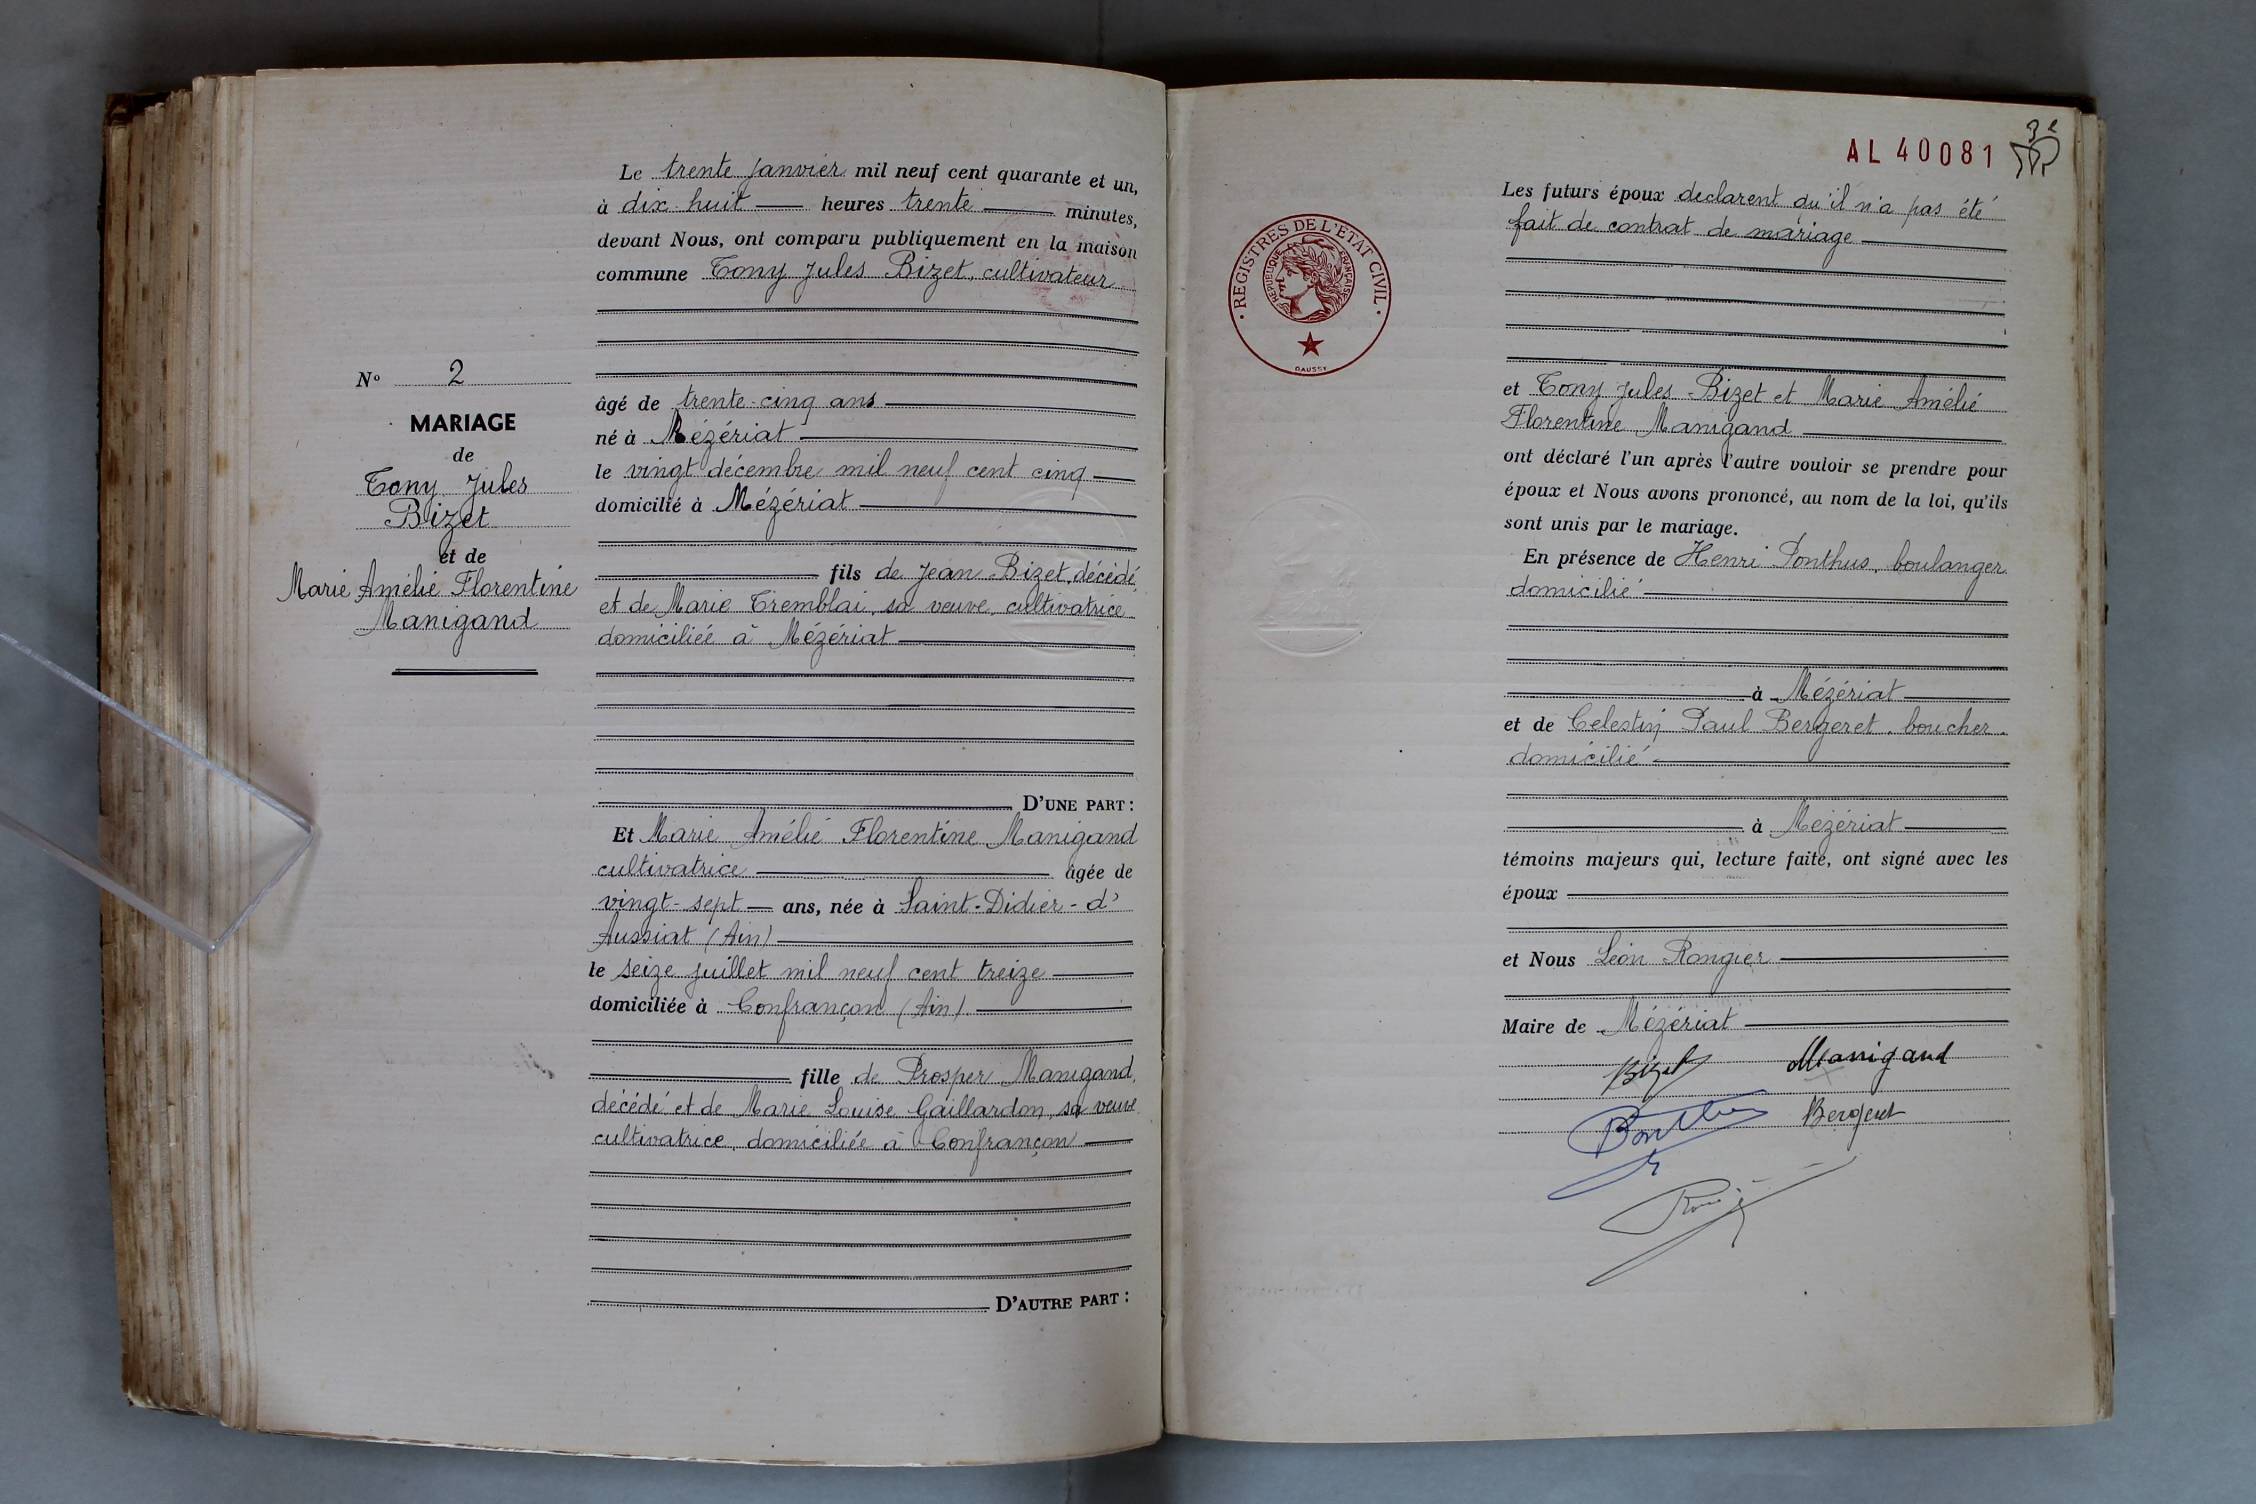 Le trente janvier mil neuf cent quarante et un,
à dix huit heures trente minutes,
devant Nous, ont comparu publiquement en la maison
commune Tony Jules Bizet, cultivateur
âgé de trente-cinq ans
né à Mézériat
le vingt décembre mil neuf cent cinq
domicilié à Mézériat
fils de Jean Bizet, décédé
et de Marie Tremblai, sa veuve, cultivatrice
domiciliée à Mézériat
D'UNE PART :
Nº 2
MARIAGE
de
Tony Jules
Bizet
et de
Marie Amélie Florentine
Manigand
Et Marie Amélie Florentine Manigand
cultivatrice âgée de
vingt-sept ans, née à Saint-Didier-d'
Aussiat (Ain)
le seize juillet mil neuf cent treize
domiciliée à Confrançon (Ain)
fille de Prosper Manigand,
décédé et de Marie Louise Gaillardon, sa veuve
cultivatrice, domiciliée à Confrançon
D'AUTRE PART :
AL 40081
REGISTRES DE L'ETAT CIVIL
REPUBLIQUE FRANÇAISE
DAUSSY
Les futurs époux declarent qu'il n'a pas été
fait de contrat de mariage
et Tony Jules Bizet et Marie Amélie
Florentine Manigand
ont déclaré l'un après l'autre vouloir se prendre pour
époux et Nous avons prononcé, au nom de la loi, qu'ils
sont unis par le mariage.
En présence de Henri Ponthus, boulanger
domicilié
à Mézériat
et de Celestin Paul Bergeret, boucher
domicilié
à Mézériat
témoins majeurs qui, lecture faite, ont signé avec les
époux
et Nous Léon Rongier
Maire de Mézériat
Bizet Manigand
Bergeret